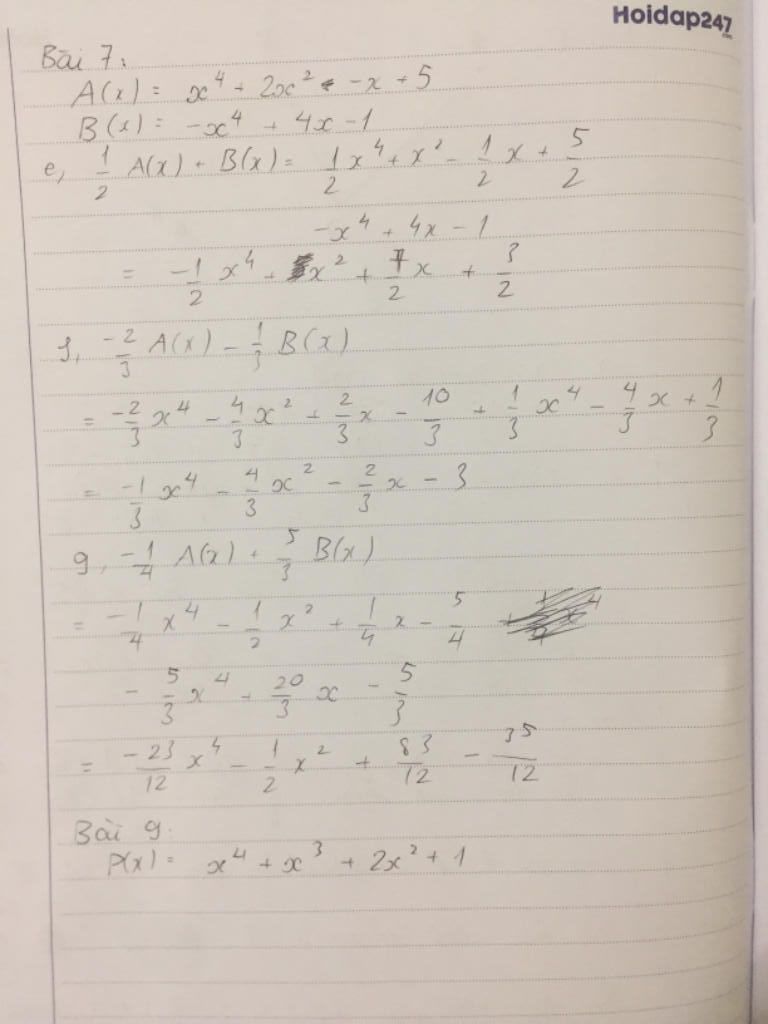 Hoidap247
Bài 7:
A(x) = x⁴ + 2x² - x + 5
B(x) = -x⁴ + 4x - 1
e, 1/2 A(x) + B(x) = 1/2 x⁴ + x² - 1/2 x + 5/2
-x⁴ + 4x - 1
= -1/2 x⁴ + x² + 7/2 x + 3/2
f, -2/3 A(x) - 1/3 B(x)
= -2/3 x⁴ - 4/3 x² + 2/3 x - 10/3 + 1/3 x⁴ - 4/3 x + 1/3
= -1/3 x⁴ - 4/3 x² - 2/3 x - 3
g, -1/4 A(x) + 5/3 B(x)
= -1/4 x⁴ - 1/2 x² + 1/4 x - 5/4
- 5/3 x⁴ + 20/3 x - 5/3
= -23/12 x⁴ - 1/2 x² + 83/12 - 35/12
Bài 9:
P(x) = x⁴ + x³ + 2x² + 1